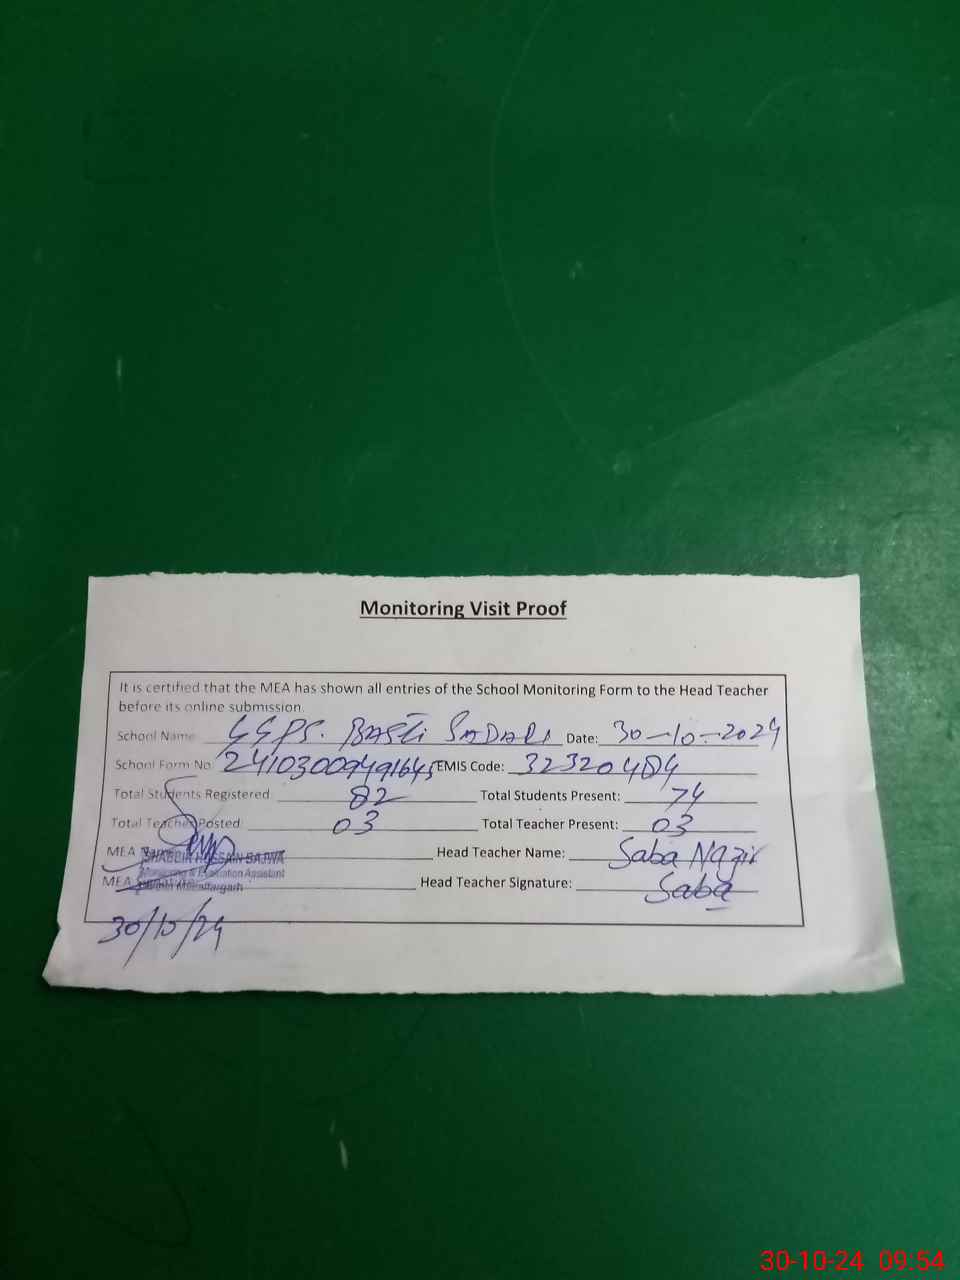 Monitoring Visit Proof
It is certified that the MEA has shown all entries of the School Monitoring Form to the Head Teacher
before its online submission.
School Name GGPS. BASTi SADARI Date: 30-10-2024
School Form No. 24103009491645 EMIS Code: 32320484
Total Students Registered: 82 Total Students Present: 74
Total Teacher Posted: 03 Total Teacher Present: 03
MEA Name SHABBIR HUSSAIN BAJWA Head Teacher Name: Saba Nazir
Monitoring & Evaluation Assistant
MEA Head Teacher Signature: Saba
30/10/24
30-10-24 09:54